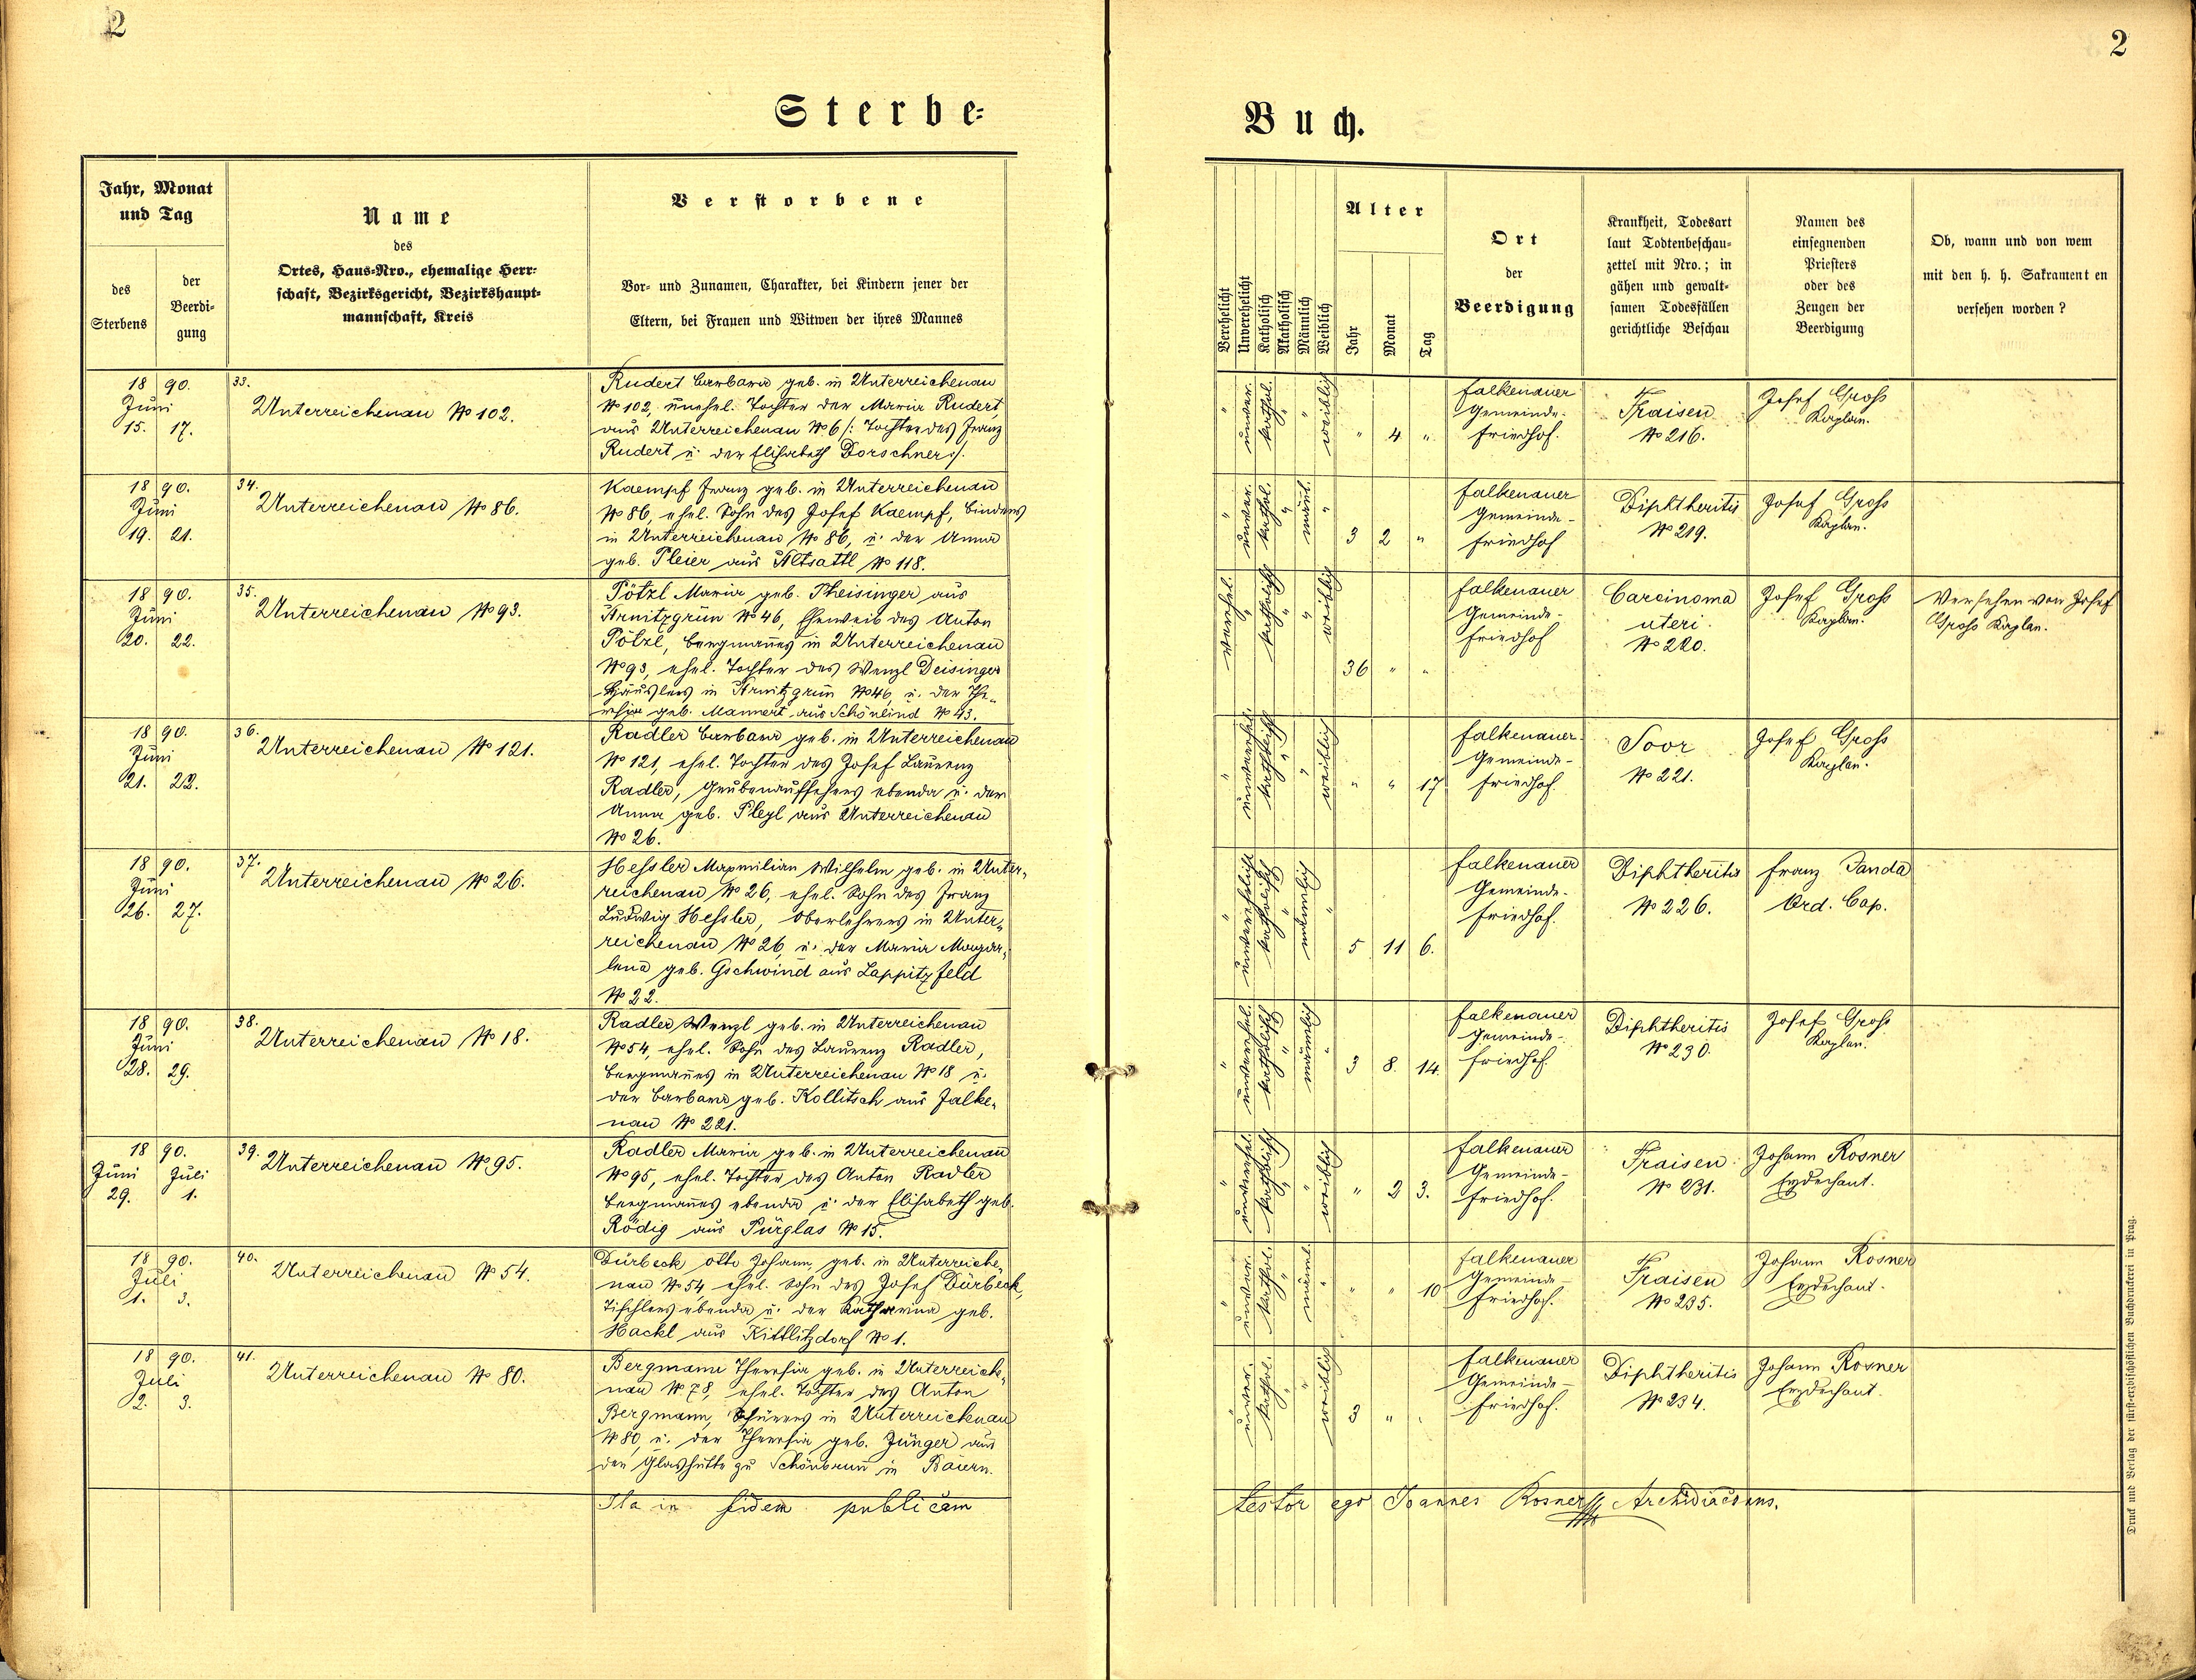 2
2
Sterbe-
Buch.
Jahr, Monat
und Tag
des
Sterbens
der
Beerdi-
gung
Name
des
Ortes, Haus-Nro., ehemalige Herr-
schaft, Bezirksgericht, Bezirkshaupt-
mannschaft, Kreis
Verstorbene
Vor- und Zunamen, Charakter, bei Kindern jener der
Eltern, bei Frauen und Witwen der ihres Mannes
Verehelicht
Unverehelicht
Katholisch
Akatholisch
Männlich
Weiblich
Alter
Jahr
Monat
Tag
Ort
der
Beerdigung
Krankheit, Todesart
laut Todtenbeschau-
zettel mit Nro.; in
gähen und gewalt-
samen Todesfällen
gerichtliche Beschau
Namen des
einsegnenden
Priesters
oder des
Zeugen der
Beerdigung
Ob, wann und von wem
mit den h. h. Sakrament en
versehen worden?
1890.
Juni
15. 17.
33.
Unterreichenau No 102.
Rudert Barbara geb. in Unterreichenau
No 102, unehel. Tochter der Maria Rudert,
aus Unterreichenau No 6 /: Tochter des Franz
Rudert u. der Elisabeth Dorschner :/.
" unver. kathol. " " weiblich
" 4 "
Falkenauer
Gemeinde-
friedhof.
Fraisen
No 216.
Josef Gross
Kaplan.
1890.
Juni
19. 21.
34.
Unterreichenau No 86.
Kaempf Franz geb. in Unterreichenau
No 86, ehel. Sohn des Josef Kaempf, Binders
in Unterreichenau No 86, u. der Anna
geb. Pleier aus Altsattl No 118.
" unver. kathol. " männl. "
3 2 "
Falkenauer
Gemeinde-
friedhof
Diphtheritis
No 219.
Josef Gross
Kaplan.
1890.
Juni
20. 22.
35.
Unterreichenau No 93.
Pötzl Maria geb. Theisinger aus
Arnitzgrün No 46, Eheweib des Anton
Pötzl, Bergmannes in Unterreichenau
No 93, ehel. Tochter des Wenzl Deisinger
Häuslers in Arnitzgrün No 46, u. der The-
resia geb. Mannert aus Schönlind No 43.
verehel. " katholisch " " weiblich
36 " "
Falkenauer
Gemeinde-
friedhof
Carcinoma
uteri.
No 220.
Josef Gross
Kaplan.
Versehen von Josef
Gross Kaplan.
1890.
Juni
21. 23.
36.
Unterreichenau No 121.
Radler Barbara geb. in Unterreichenau
No 121, ehel. Tochter des Josef Laurenz
Radler, Grubenaufsehers ebenda u. der
Anna geb. Pleyl aus Unterreichenau
No 26.
" unverehel. katholisch " " weiblich
" " 17
Falkenauer
Gemeinde-
friedhof.
Soor
No 221.
Josef Gross
Kaplan.
1890.
Juni
26. 27.
37.
Unterreichenau No 26.
Hessler Maxmilian Wilhelm geb. in Unter-
reichenau No 26, ehel. Sohn des Franz
Ludwig Hessler, Oberlehrers in Unter-
reichenau No 26, u. der Maria Magda-
lena geb. Gschwind aus Lappitzfeld
No 22.
" unverehelicht katholisch " männlich "
5 11 6.
Falkenauer
Gemeinde-
friedhof.
Diphtheritis
No 226.
Franz Janda
Ord. Cap.
1890.
Juni
28. 29.
38.
Unterreichenau No 18.
Radler Wenzl geb. in Unterreichenau
No 54, ehel. Sohn des Laurenz Radler,
Bergmannes in Unterreichenau No 18 u.
der Barbara geb. Kollitsch aus Falke-
nau No 221.
" unverehel. katholisch " männlich "
3 8. 14.
Falkenauer
Gemeinde-
friedhof.
Diphtheritis
No 230.
Josef Gross
Kaplan.
1890.
Juni Juli
29. 1.
39.
Unterreichenau No 95.
Radler Maria geb. in Unterreichenau
No 95, ehel. Tochter des Anton Radler
Bergmannes ebenda u. der Elisabeth geb.
Rödig aus Pürglas No 15.
" unverehel. katholisch " " weiblich
" 2 3.
Falkenauer
Gemeinde-
friedhof.
Fraisen
No 231.
Johann Rosner
Erzdechant.
1890.
Juli
1. 3.
40.
Unterreichenau No 54.
Dürbeck Otto Johann, geb. in Unterreiche-
nau No 54, ehel. Sohn des Josef Dürbeck,
Tischlers ebenda u. der Katharina geb.
Hackl aus Kittlitzdorf No 1.
" unver. kathol. " männl. "
" " 10
Falkenauer
Gemeinde-
friedhof.
Fraisen
No 235.
Johann Rosner
Erzdechant.
1890.
Juli
2. 3.
41.
Unterreichenau No 80.
Bergmann Theresia geb. in Unterreich-
nau No 78, ehel. Tochter des Anton
Bergmann, Schürers in Unterreichenau
No 80, u. der Theresia geb. Junger aus
der Glashütte zu Schönbrunn in Baiern.
" unver. kathol. " " weiblich
3 " "
Falkenauer
Gemeinde-
friedhof.
Diphtheritis
No 234.
Johann Rosner
Erzdechant.
Ita in fidem publicam
testor ego Joannes Rosner Archidiaconus.
Druck und Verlag der fürsterzbischöflichen Buchdruckerei in Prag.